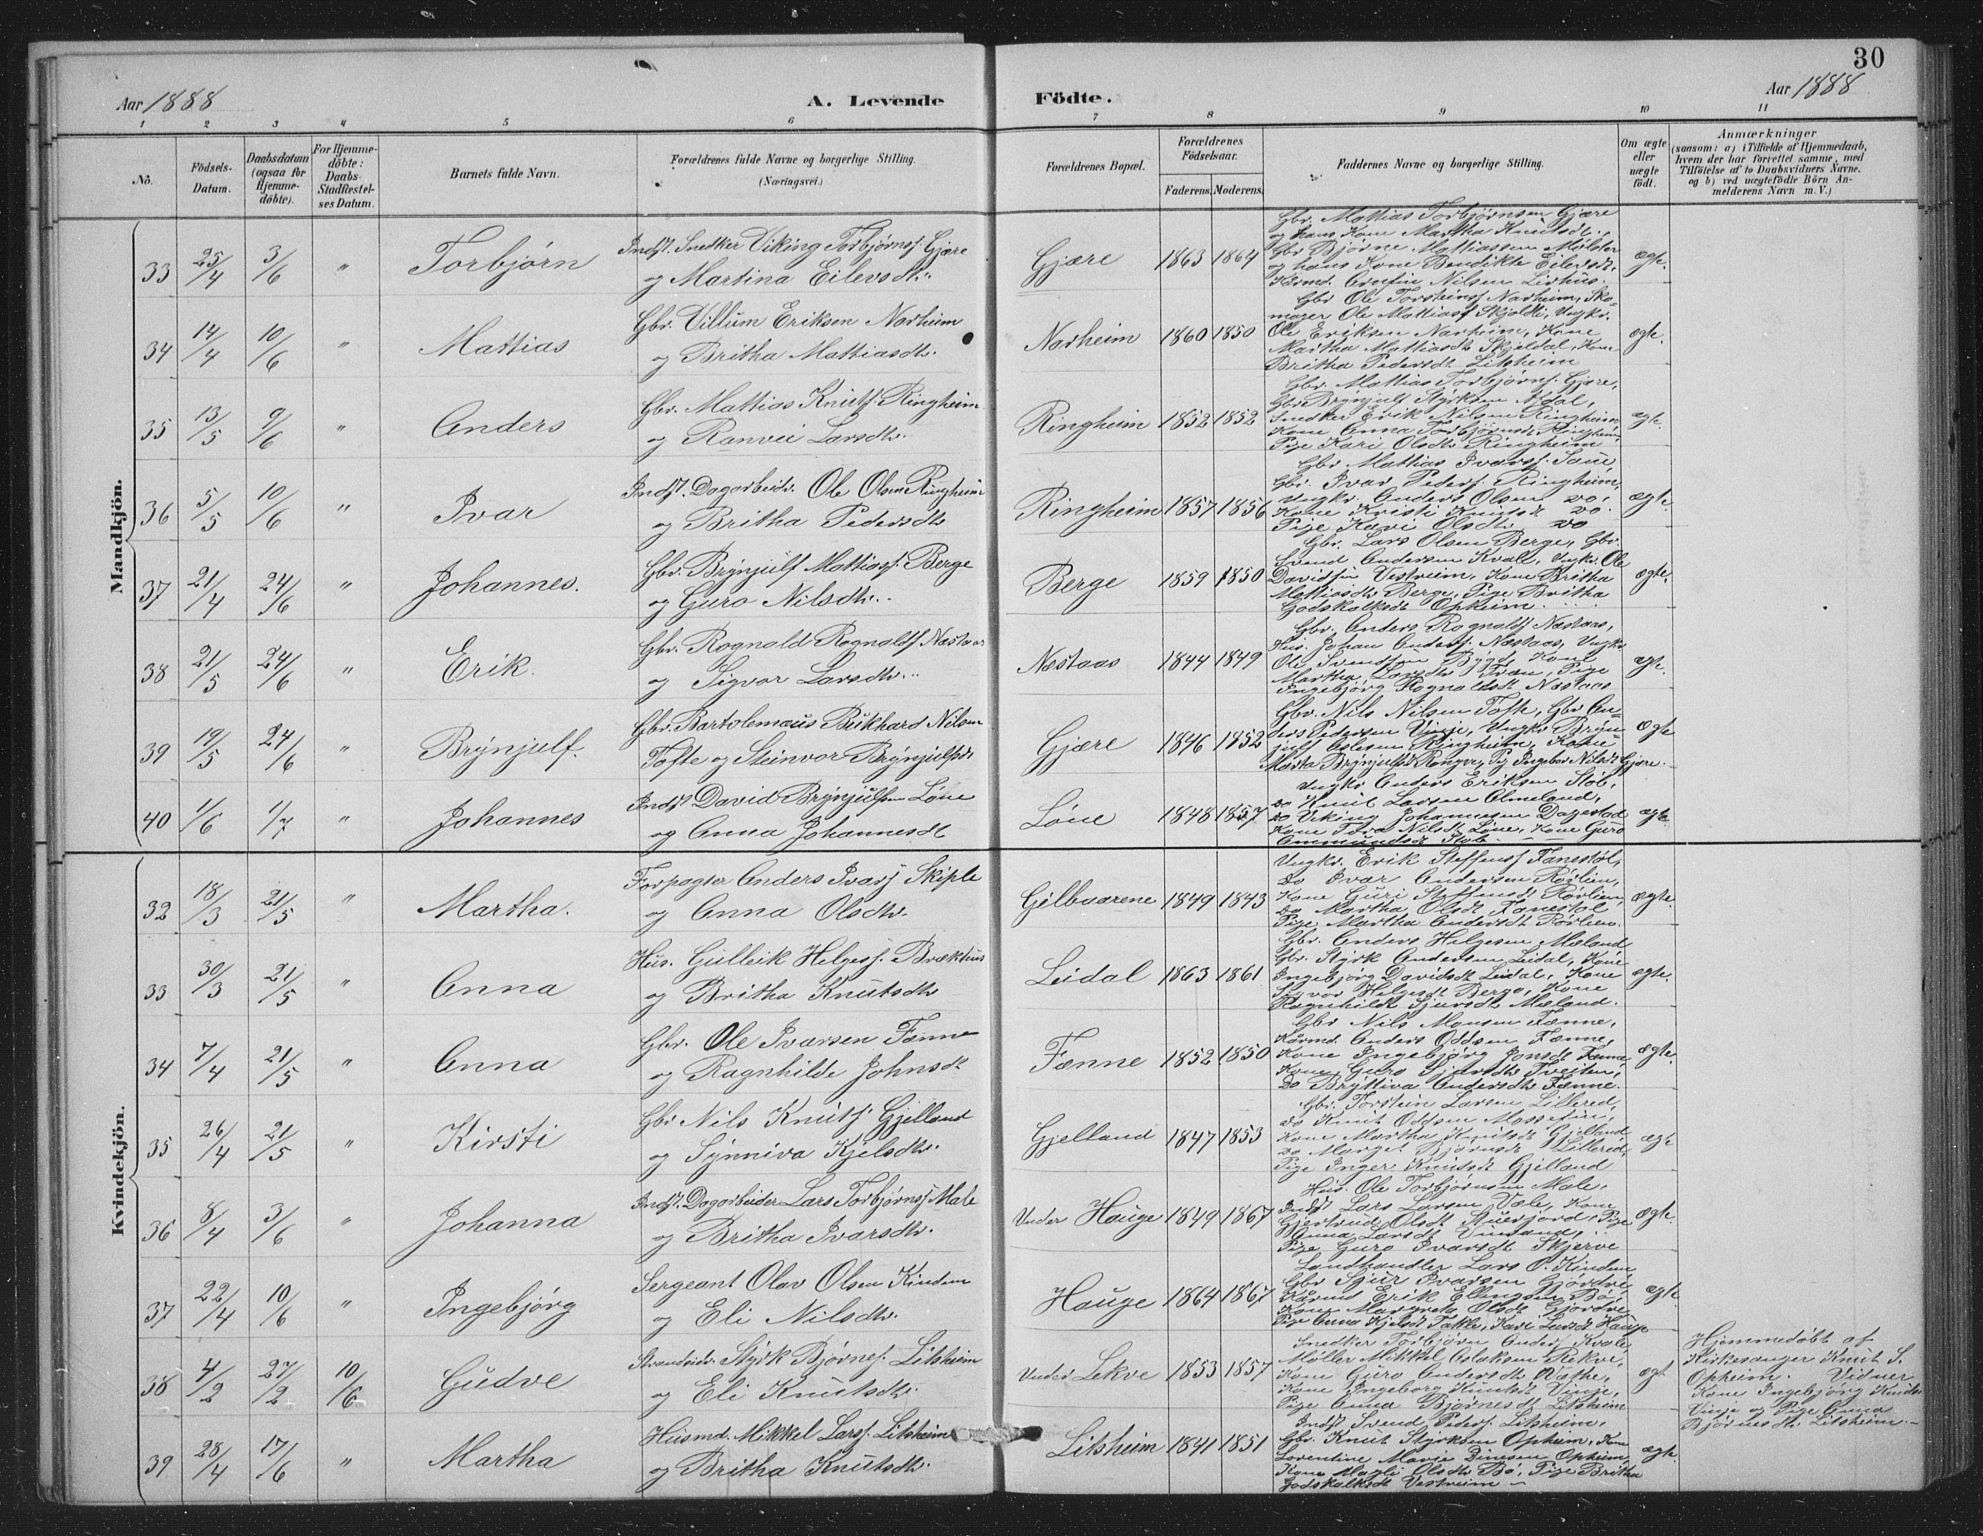 30
Aar 1888
A. Levende
Födte.
Aar 1888
1 2 3 4 5 6 7 8 9 10 11
No.
Födsels-Datum.
Daabsdatum (ogsaa for Hjemme-döbte).
For Hjemme-döbte: Daabs-Stadfæstel-ses Datum.
Barnets fulde Navn.
Forældrenes fulde Navne og borgerlige Stilling.
(Næringsvei.)
Forældrenes Bopæl.
Forældrenes Födselsaar.
Faderens. Moderens.
Faddernes Navne og borgerlige Stilling.
Om ægte eller uægte födt.
Anmærkninger
(saasom: a) i Tilfælde af Hjemmedaab,
hvem der har forrettet samme, med
Tilföielse af to Daabsvidners Navne.
og b) ved uægtefödte Börn An-
melderens Navn m. V.)
Mandkjön.
33 25/4 3/6 " Torbjörn
Indst. Snedker Viking Torbjörnss. Gjære
og Martina Eilevsdtr.
Gjære 1863 1864
Gbr. Mattias Torbjörnsen Gjære
og hans Kone Martha Knutsdt.,
Gbr Björne Mattiassen Mölster
og hans Kone Bendikte Eilevsdt.
Kårmd. Arnfin Nilsen Lirhus.
ægte.
34 14/4 10/6 " Mattias
Gbr. Villum Eriksen Norheim
og Britha Mattiasdtr.
Norheim 1860 1850
Gbr Ole Torsteins. Norheim, Sko-
mager Ole Mattiass. Skjeldal, Ungkr.
Ole Eriksen Norheim, Kone
Martha Mattiasdt Skjeldal, Kone
Britha Pedersdt Litsheim
ægte.
35 13/5 9/6 " Anders
Gbr. Mattias Knuts. Ringheim
og Ranvei Larsdtr.
Ringheim 1852 1852
Gbr. Mattias Torbjörns. Gjære,
Gbr Brynjulf Styrksen Afdal,
Snedker Erik Nilsen Ringheim,
Kone Anna Torbjörnsdt Ringheim
Pige Kari Olsdtr Ringheim
ægte.
36 5/5 10/6 " Ivar
Indst. Dagarbeidr. Ole Olsen Ringheim
og Britha Pedersdtr
Ringheim 1857 1856
Gbr Mattias Ivarss. Saue,
Gbr. Ivar Peders. Ringheim,
Ungkr. Anders Olsen do.
Kone Kristi Knutsdt do.
Pige Kari Olsdtr. do
ægte.
37 21/4 24/6 " Johannes.
Gbr. Brynjulf Mattiass. Berge
og Guro Nilsdtr.
Berge 1859 1850
Gbr. Lars Olsen Berge, Gbr
Svend Andersen Kvale, Ungkr. Ole
Davidsen Vestreim, Kone Britha
Mattiasdt. Berge, Pige Britha
Godskalksdt Opheim.
ægte.
38 21/5 24/6 " Erik.
Gbr. Rognald Rognalds. Næstaas
og Sigvor Larsdtr.
Næstaas 1844 1849
Gbr. Anders Rognalds. Næstaas,
Hus. Johan Anders. Næstaas, Ungkr
Ole Svendsen Bygd, Kone
Martha Larsdtr Træn, Pige
Ingebjörg Rognaldsdt Næstaas
ægte.
39 19/5 24/6 " Brynjulf.
Gbr. Bartolemæus Bukkhard Nilsen
Tofte og Steinvor Brynjulfsdt
Gjære 1846 1852
Gbr. Nils Nilsen Tofte, Gbr An-
ders Pedersen Vinje, Ungkr Bryn-
julf Olsen Ringheim, Kone
Marta Brynjulfsdt Rongve, Pig Ingebor Nilsdt Gjære.
ægte
40 1/6 1/7 " Johannes
Indst David Brynjulfsen Löne
og Anna Johannesdt
Löne 1848 1857
Ungkr Anders Eriksen Slob,
do Knut Larsen Almeland,
do Viking Johannesen Dagestad
Kone Tora Nilsdt Löne, Kone Guro
Ommundsdt Slob.
ægte.
Kvindekjön.
32 18/3 21/5 " Martha.
Forpagter Anders Ivars. Skiple
og Anna Olsdtr.
Gilbvarene 1849 1843
Ungkr. Erik Steffenss. Fænestöl,
do Ivar Andersen Rörlien,
Kone Guri Steffensdt Rörlien,
do Martha Olsdt Fænestöl
Pige Martha Andersdt Rörlien.
ægte.
33 30/3 21/5 " Anna
Hus. Gulleik Helgess. Brækhus
og Britha Knutsdtr
Leidal 1863 1861
Gbr. Anders Helgesen Mæland
Gbr. Styrk Andersen Leidal, Kone
Ingebjörg Davidsdt Leidal, Kone
Sigvor Helgesdt Berge, Kone
Ragnhildt Sjursdt Mæland.
ægte.
34 7/4 21/5 " Anna
Gbr. Ole Ivarsen Fænne
og Ragnhilde Johnsdt
Fænne 1852 1850
Gbr Nils Monsen Fænne,
Kårmd. Anders Oddsen Fænne,
Kone Ingebjörg Jonsdt Fænne
Kone Guro Sjursdtr Tveiten,
do Bryttiva Andersdtr Fænne.
ægte.
35 26/4 21/5 " Kirsti
Gbr Nils Knuts. Gjelland
og Synniva Kjelsdtr.
Gjelland 1847 1853
Gbr. Torstein Larsen Lillered,
do Knut Oddsen Mossefin,
Kone Martha Knutsdt Gjelland
do Marget Björnsdt Lillered,
Pige Inger Knutsdt Gjelland
ægte
36 8/4 3/6 " Johanna
Indst. Dagarbeider Lars Torbjörns. Male
og Britha Ivarsdtr.
Under Hauge 1849 1867
Hus. Ole Torbjörnsen Male,
Indst Lars Larsen Vale, Kone
Gjertrud Olsdt Stuerjord, Pige
Anna Larsdt Vinsand,
Pige Guro Ivarsdt Skjerve
ægte.
37 22/4 10/6 " Ingebjörg
Sergeant Olav Olsen Kindem
og Eli Nilsdtr.
Hauge 1864 1867
Landhandler Lars O. Kindem
Gbr Sjur Ivarsen Gjördre,
Kårmd Erik Ellingsen Bö,
Kone Margreta Olsdt Gjördre
Pige Anna Kjelsdt Takle, Kari Larsdt Hauge
ægte.
38 4/2 27/2 10/6 Gudve
Strandsidr Styrk Björnes. Litsheim
og Eli Knutsdtr.
Under Lekve 1853 1857
Snedker Torbjörn Anders. Kvale,
Möller Mikkel Aslaksen Rekve,
Kone Guro Andersdt Væthe,
Kone Ingeborg Knutsdt Vinje,
Pige Anna Björnesdt Litsheim
ægt.
Hjemmedöbt af
Kirkesanger Knut S.
Opheim. Vidner
Kone Ingebjörg Knutsdt
Vinje og Pige Anna
Björnesdtr Litsheim.
39 28/4 17/6 " Martha
Husmd. Mikkel Larss. Litsheim
og Britha Knutsdtr.
Litsheim 1841 1851
Indst Svend Peders. Litsheim,
Gbr. Knut Styrksen Opheim, Kone
Lorentine Marie Dinesen Opheim,
Kone Magli Olsdt Bö, Pige Britha
Godskalksdt Vestreim
ægte.